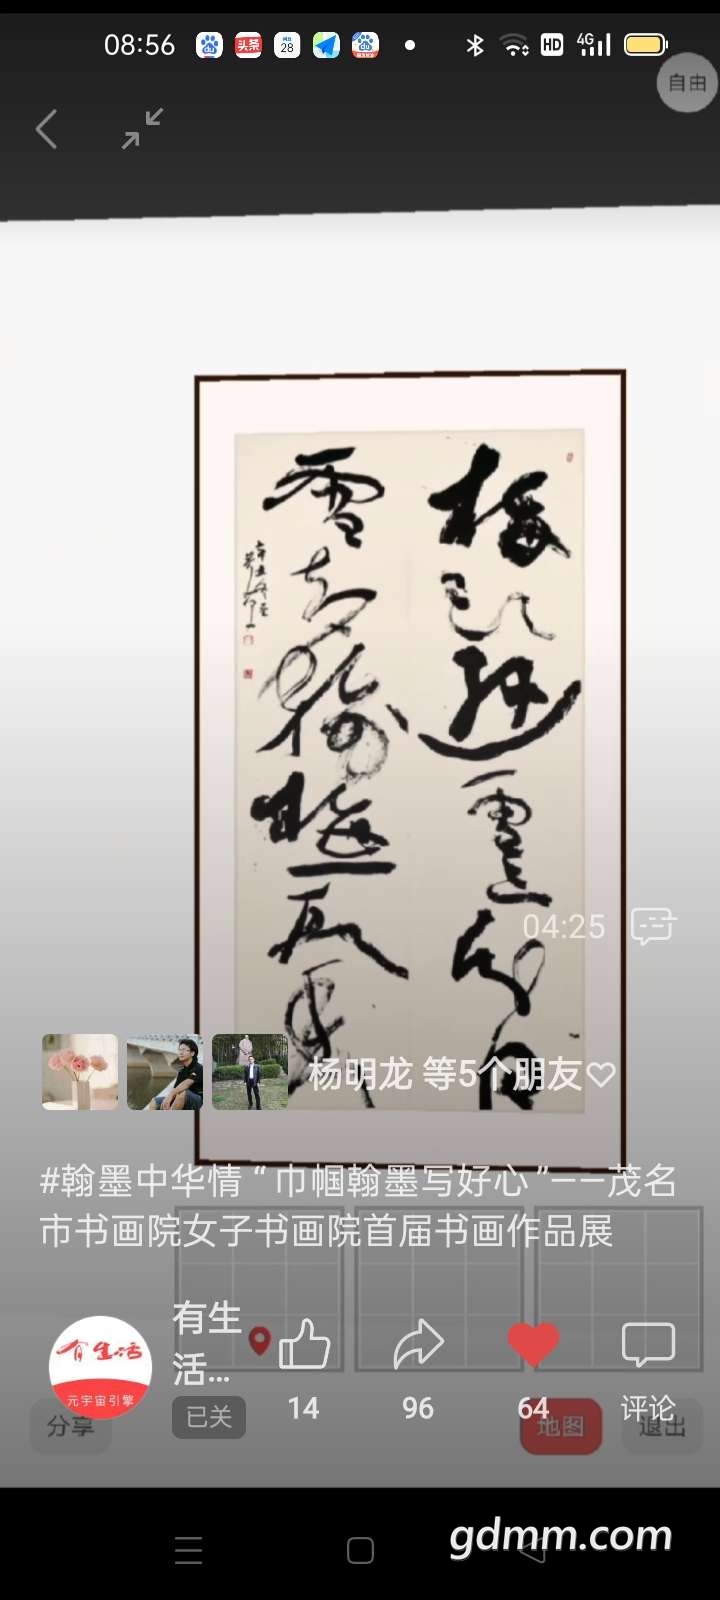 08:56
头条
28
HD
4G
自由
梅須遜雪三分白
雪却輸梅一段香
04:25
杨明龙 等5个朋友♡
#翰墨中华情 “ 巾帼翰墨写好心 ”——茂名
市书画院女子书画院首届书画作品展
有生活
元宇宙引擎
有生
活...
已关
14
96
64
评论
分享
地图
退出
gdmm.com